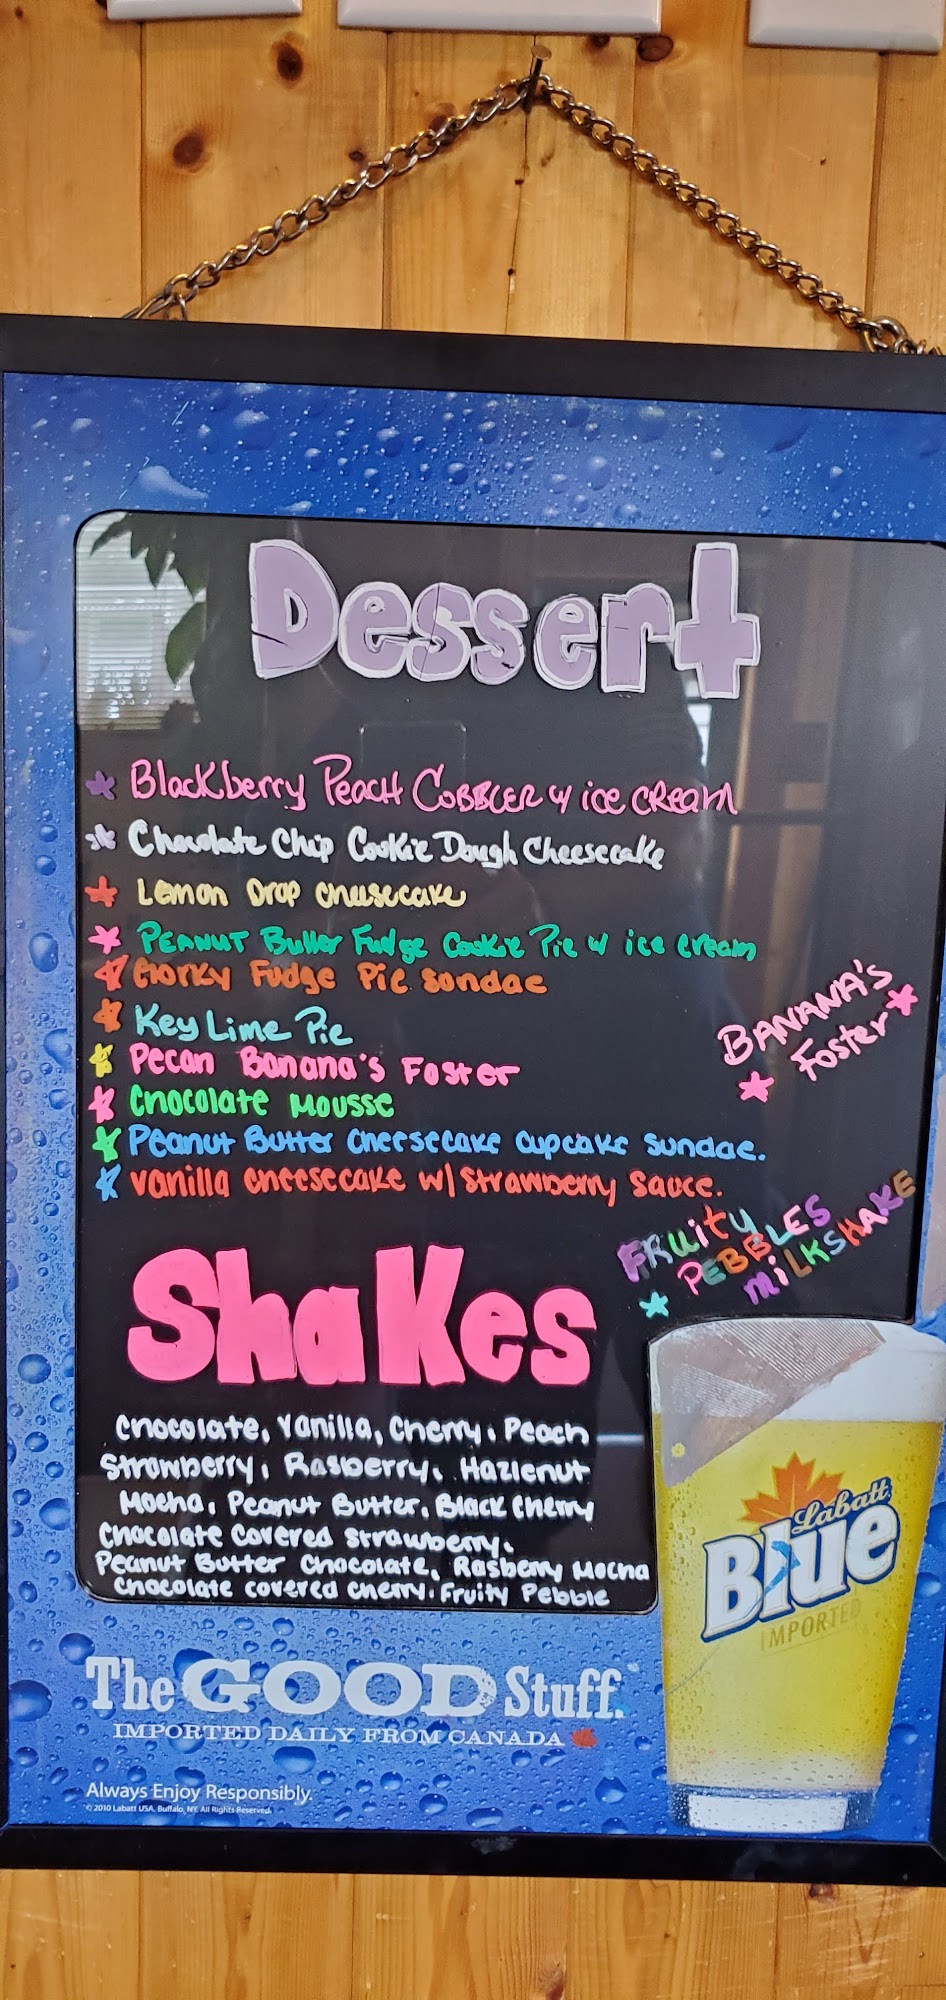 Dessert
Blackberry Peach Cobbler w/ ice cream
Chocolate Chip Cookie Dough Cheesecake
Lemon Drop Cheesecake
Peanut Butter Fudge Cookie Pie w/ ice cream
Fudge Pie Sundae
Key Lime Pie
Pecan Banana's Foster
Chocolate Mousse
Peanut Butter Cheesecake Cupcake Sundae.
Vanilla Cheesecake w/ Strawberry Sauce.
BANANA'S
Foster
FRuity
PEBBLES
MiLKSHAKE
Shakes
Chocolate, Vanilla, Cherry, Peach
Strawberry, Rasberry, Hazlenut
Mocha, Peanut Butter, Black Cherry
Chocolate Covered Strawberry,
Peanut Butter Chocolate, Rasberry Mocha
Chocolate covered cherry, Fruity Pebble
Labatt
Blue
IMPORTED
The GOOD Stuff.
IMPORTED DAILY FROM CANADA
Always Enjoy Responsibly.
© 2010 Labatt USA, Buffalo, NY. All Rights Reserved.